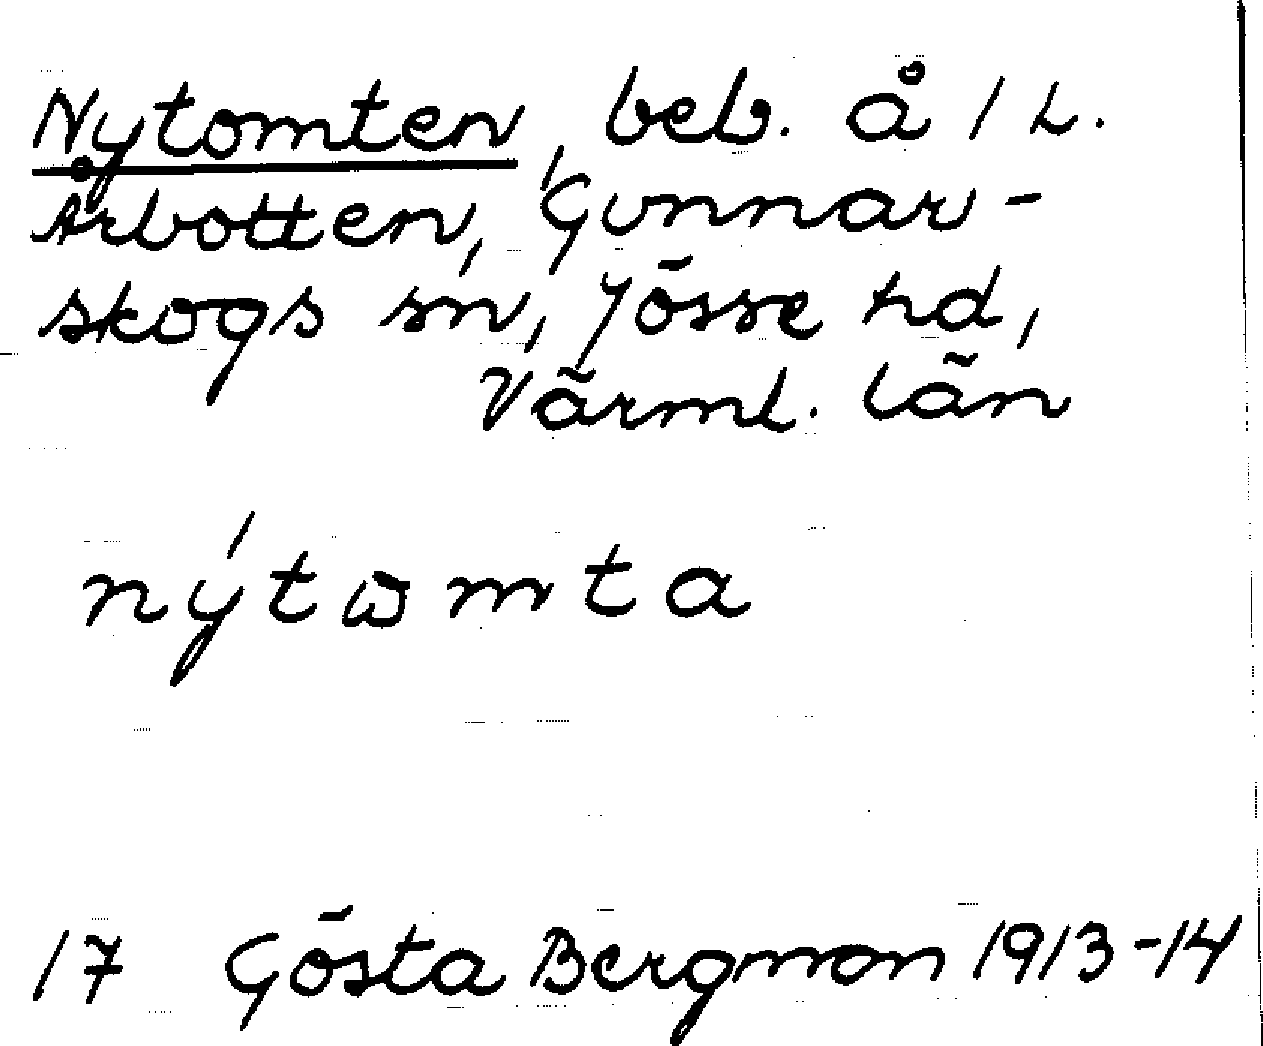 Nytomten, beb. å 1 L.
Årbotten, Gunnar-
skogs sn, Jösse hd,
Värml. län
nýtωmta
17 Gösta Bergman 1913-14